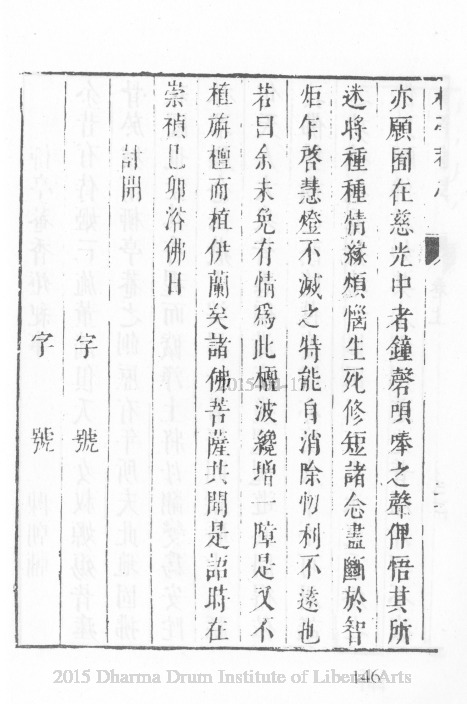 亦願囿在慈光中者鐘磬唄奉之聲俾悟其所
迷將種種情緣煩惱生死修短諸念盡斷於智
炬乍啓慧燈不滅之時能自消除忉利不遠也
若曰余未免有情為此檀波纔增障是又不
植旃檀而植伊蘭矣諸佛菩薩共聞是語時在
崇禎己卯浴佛日
計開
字 號
字 號
2015 Dharma Drum Institute of Liberal Arts
146